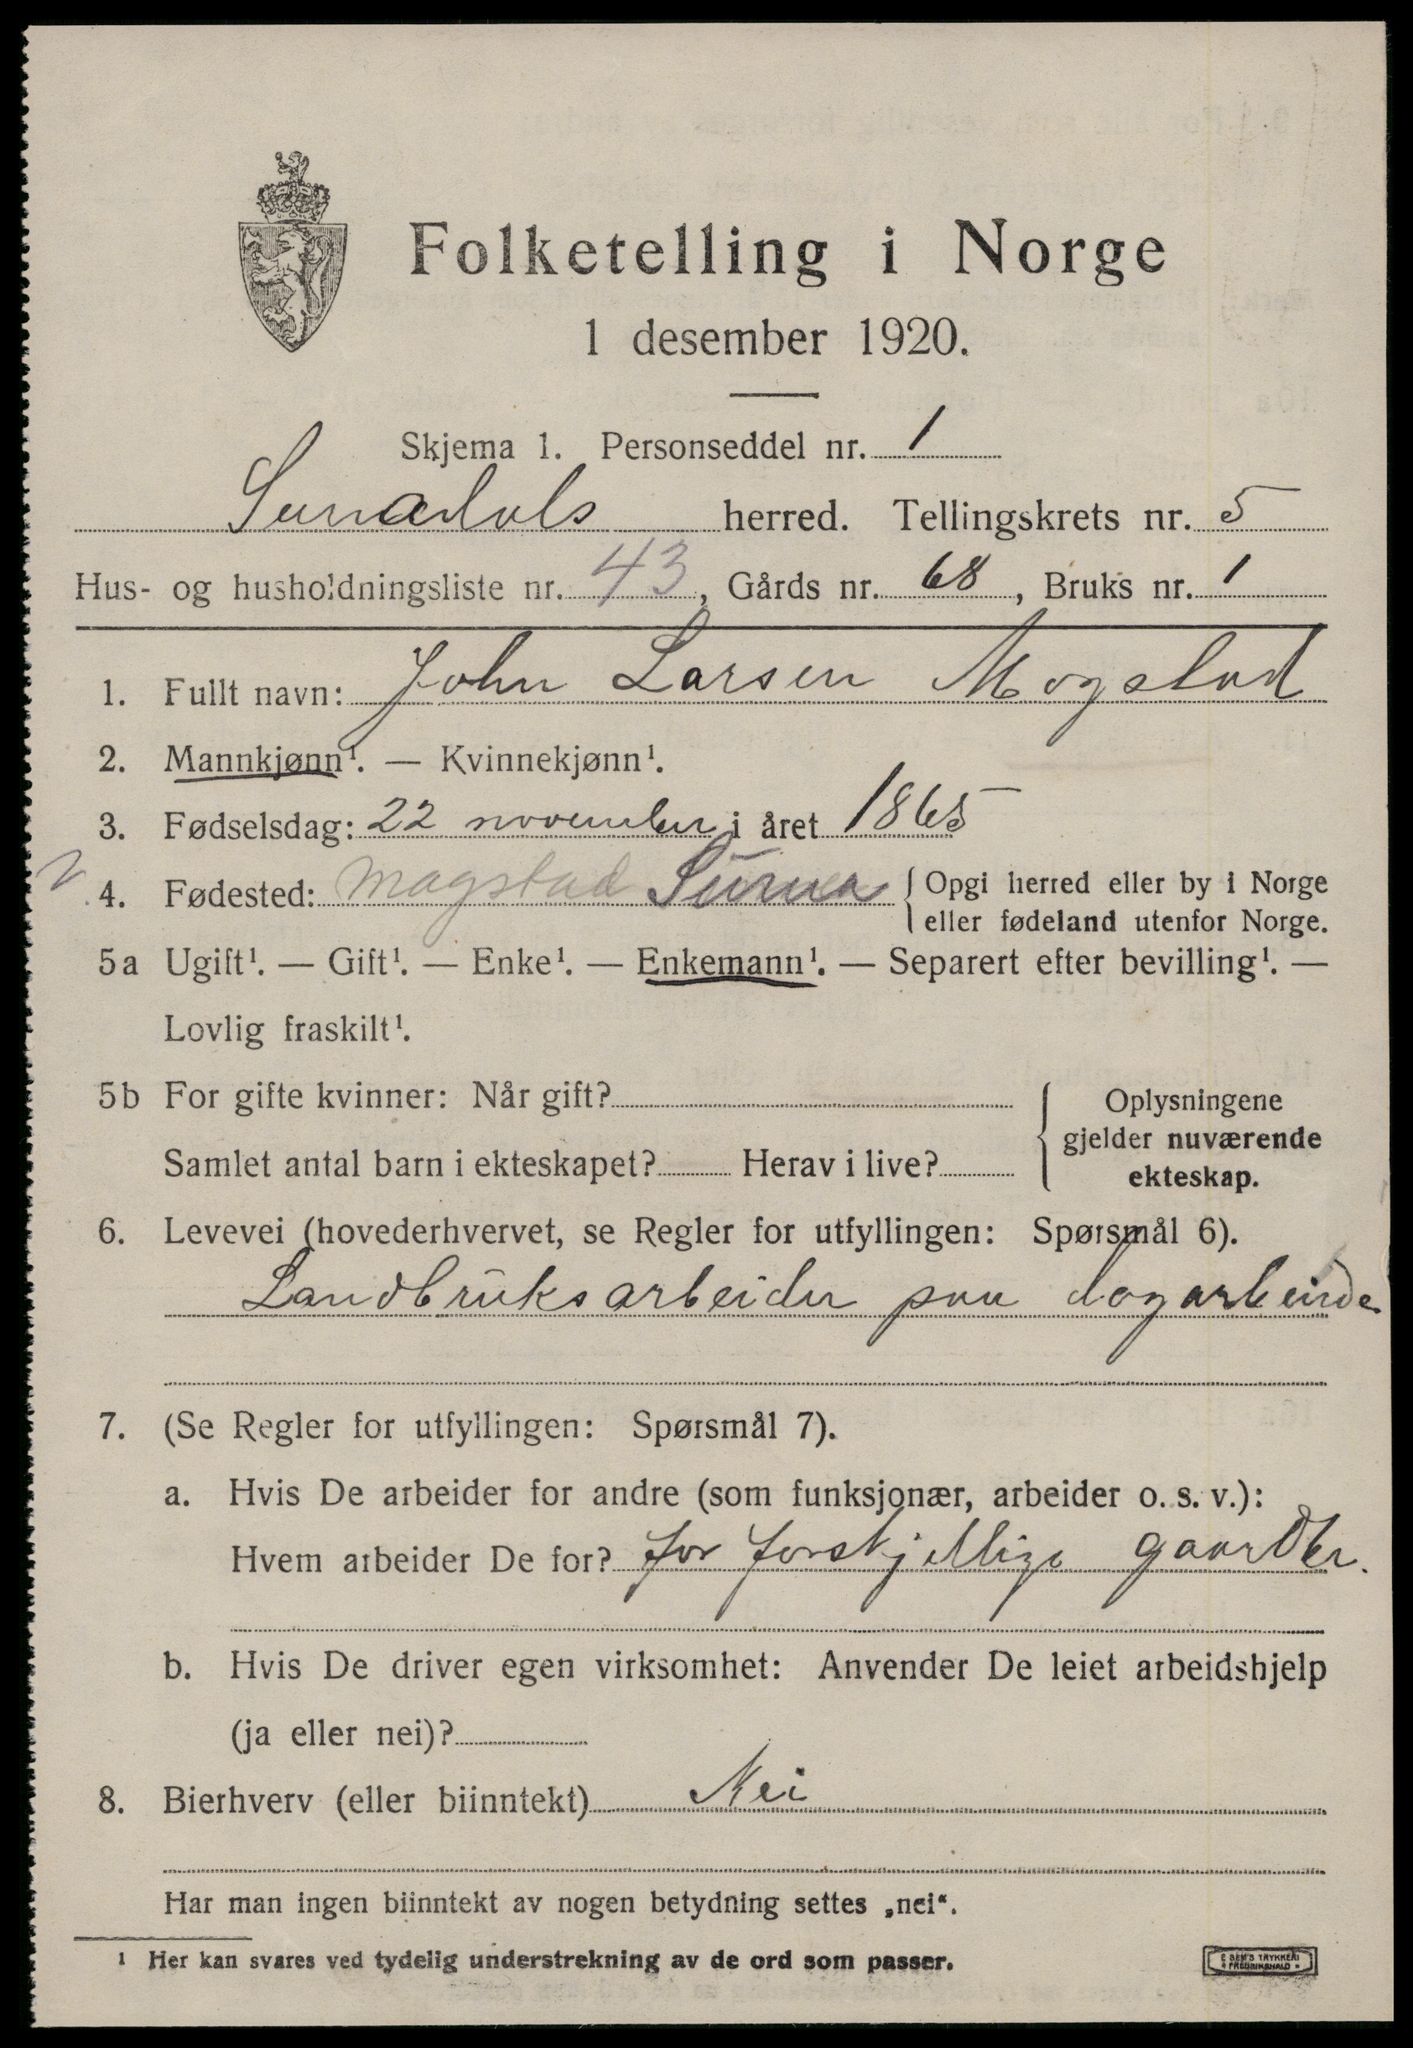 Folketelling i Norge
1 desember 1920.
Skjema 1. Personseddel nr. 1
Sunndals herred. Tellingskrets nr. 5
Hus- og husholdningsliste nr. 43, Gårds nr. 68, Bruks nr. 1
1. Fullt navn: John Larsen Mogstad
2. Mannkjønn¹. — Kvinnekjønn¹.
3. Fødselsdag: 22 november i året 1865
4. Fødested: Magstad Surna { Opgi herred eller by i Norge
eller fødeland utenfor Norge.
5a Ugift¹. — Gift¹. — Enke¹. — Enkemann¹. — Separert efter bevilling¹. —
Lovlig fraskilt¹.
5b For gifte kvinner: Når gift?
Samlet antal barn i ekteskapet? Herav i live?
Oplysningene
gjelder nuværende
ekteskap.
6. Levevei (hovederhvervet, se Regler for utfyllingen: Spørsmål 6).
Landbruksarbeider paa dagarbeide
7. (Se Regler for utfyllingen: Spørsmål 7).
a. Hvis De arbeider for andre (som funksjonær, arbeider o. s. v.):
Hvem arbeider De for? for forskjellige gaarder.
b. Hvis De driver egen virksomhet: Anvender De leiet arbeidshjelp
(ja eller nei)?
8. Bierhverv (eller biinntekt) Nei
Har man ingen biinntekt av nogen betydning settes „nei“.
¹ Her kan svares ved tydelig understrekning av de ord som passer.
E SEM'S TRYKKERI
FREDRIKSHALD